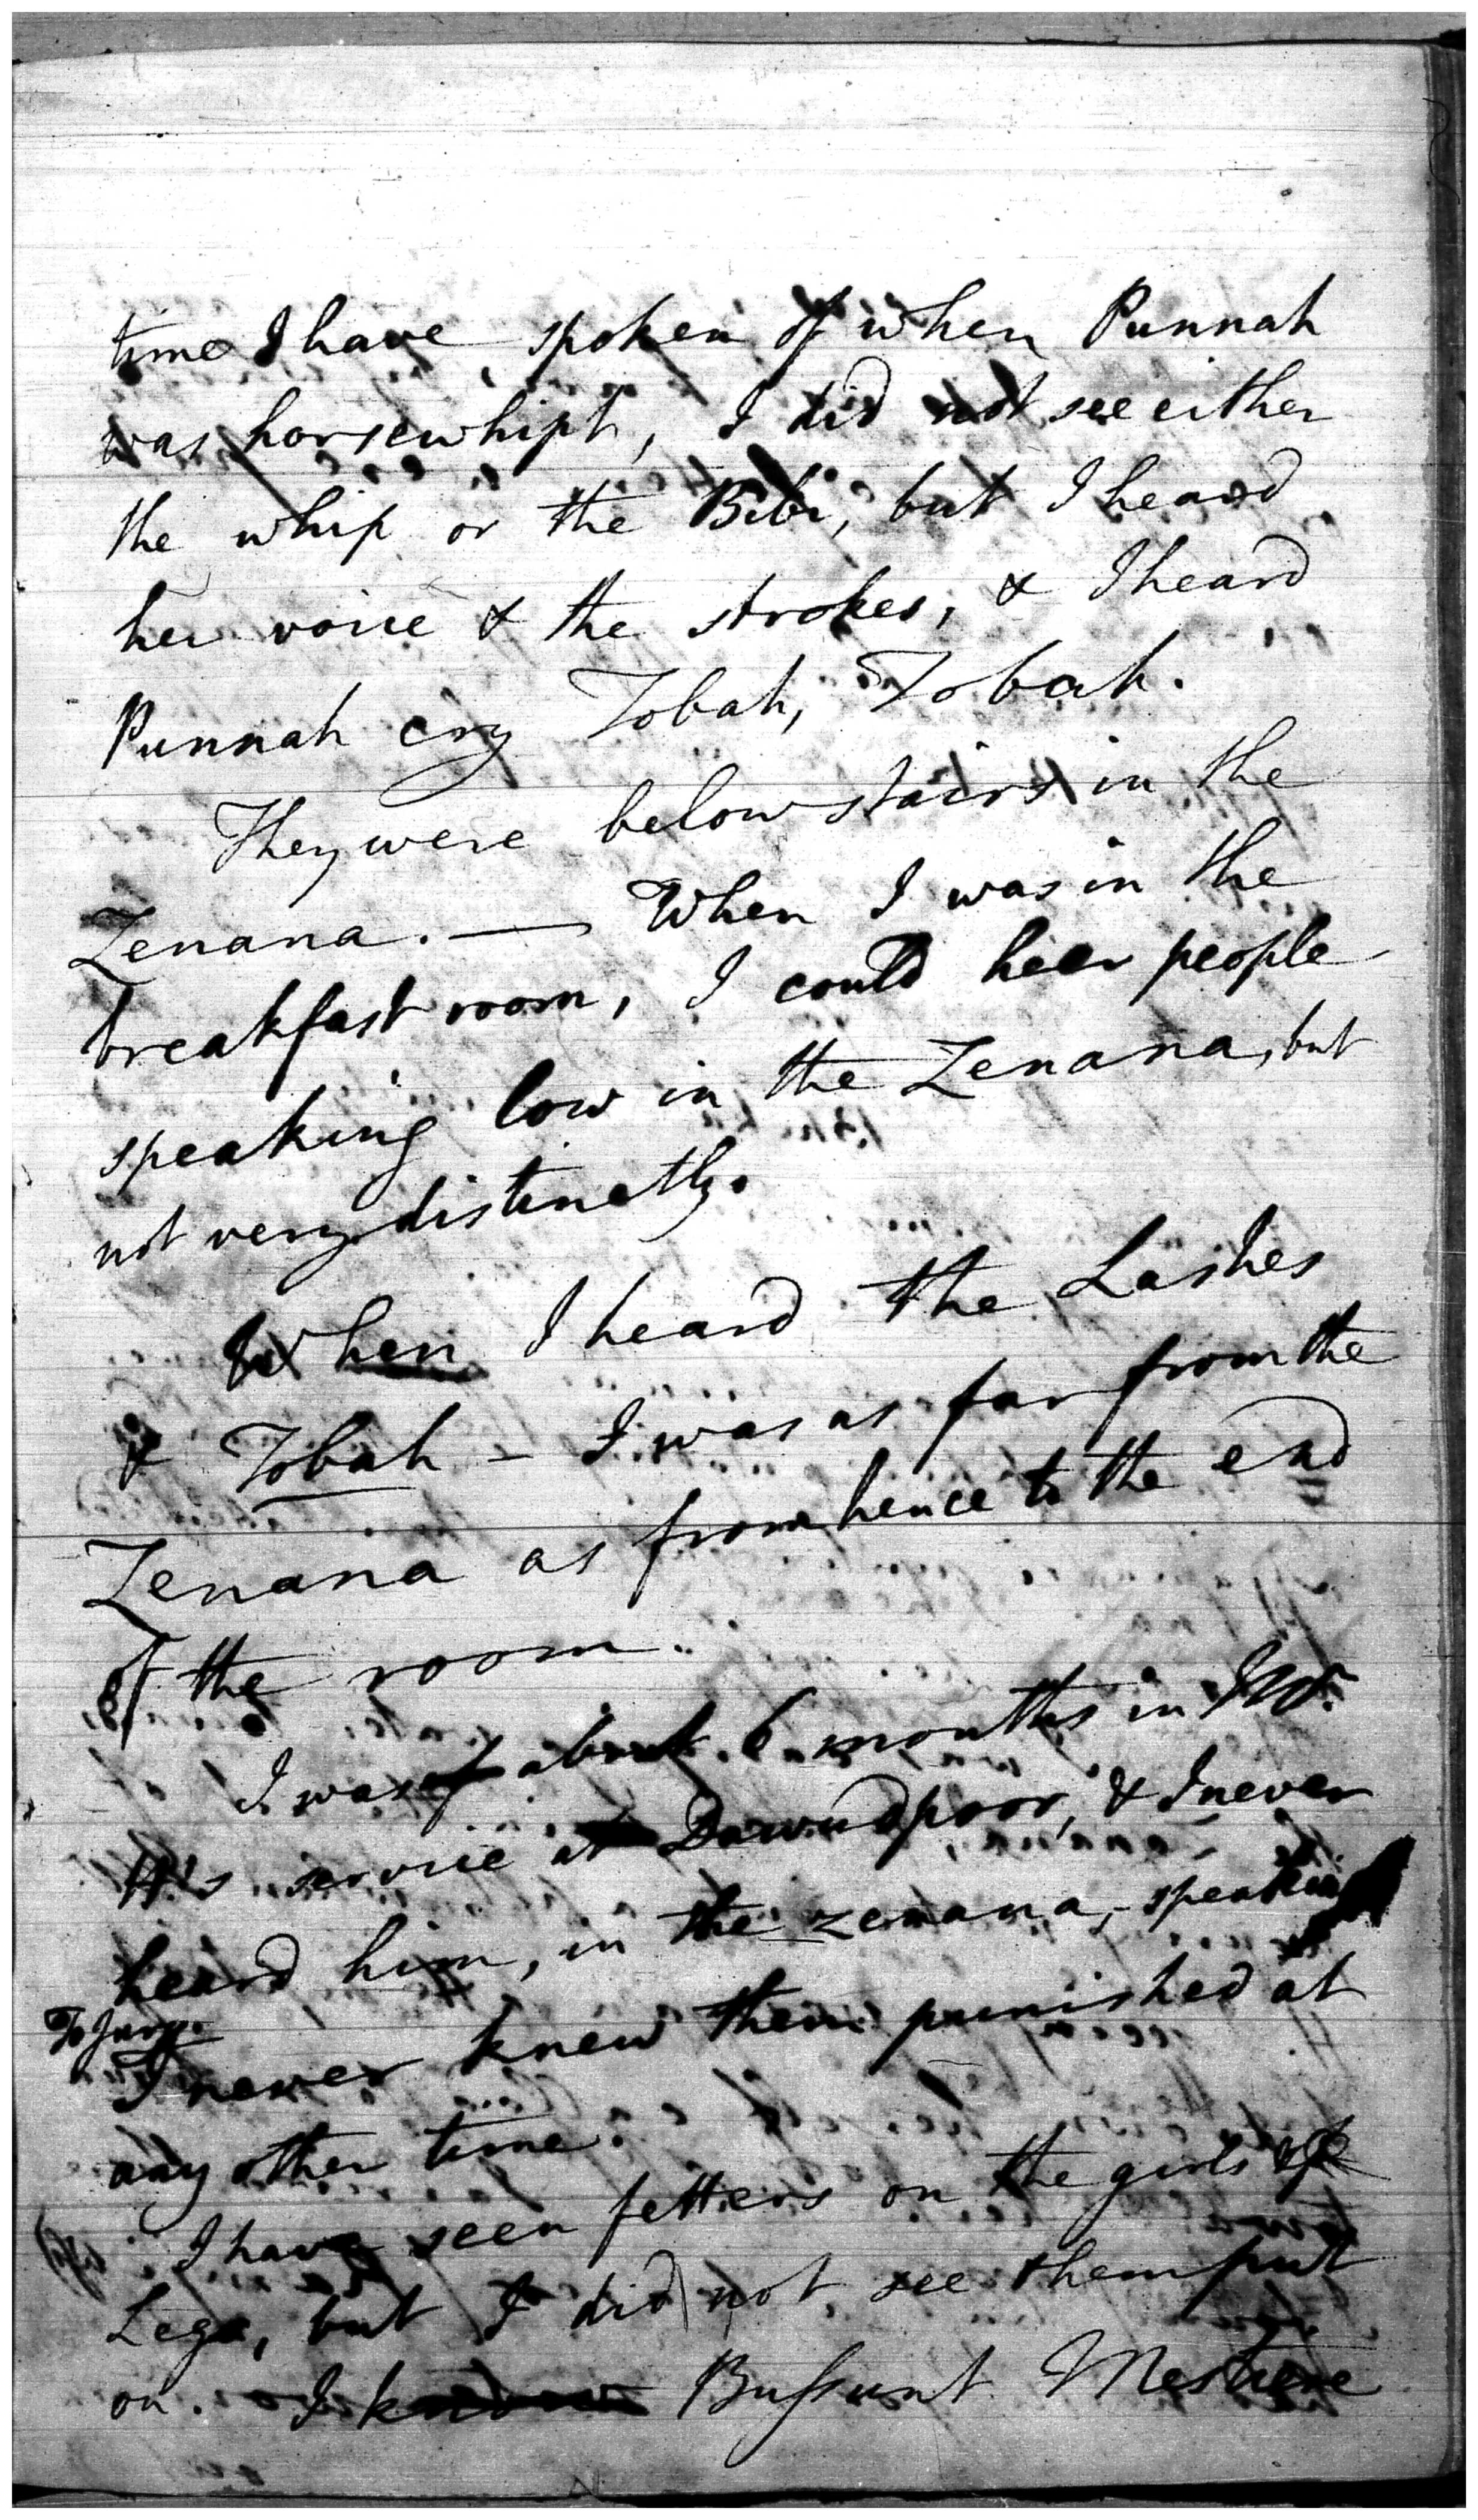 time I have spoken of when Punnah
was horsewhipt, I did not see either
the whip or the Bibi, but I heard
her voice & the strokes, & I heard
Punnah cry Tobah, Tobah.
They were below stairs in the
Zenana. — When I was in the
breakfast room, I could hear people
speaking low in the Zenana, but
not very distinctly.
When I heard the Lashes
& Tobah – I was as far from the
Zenana as from hence to the end
of the room.
I was about 6 months in Mr.
H's service at Dawudpoor, & I never
heard him, in the zenana, speaking
To Jury.
I never knew them punished at
any other time.
I have seen fetters on the girls
Legs, but I did not see them put
on. I know Bussunt